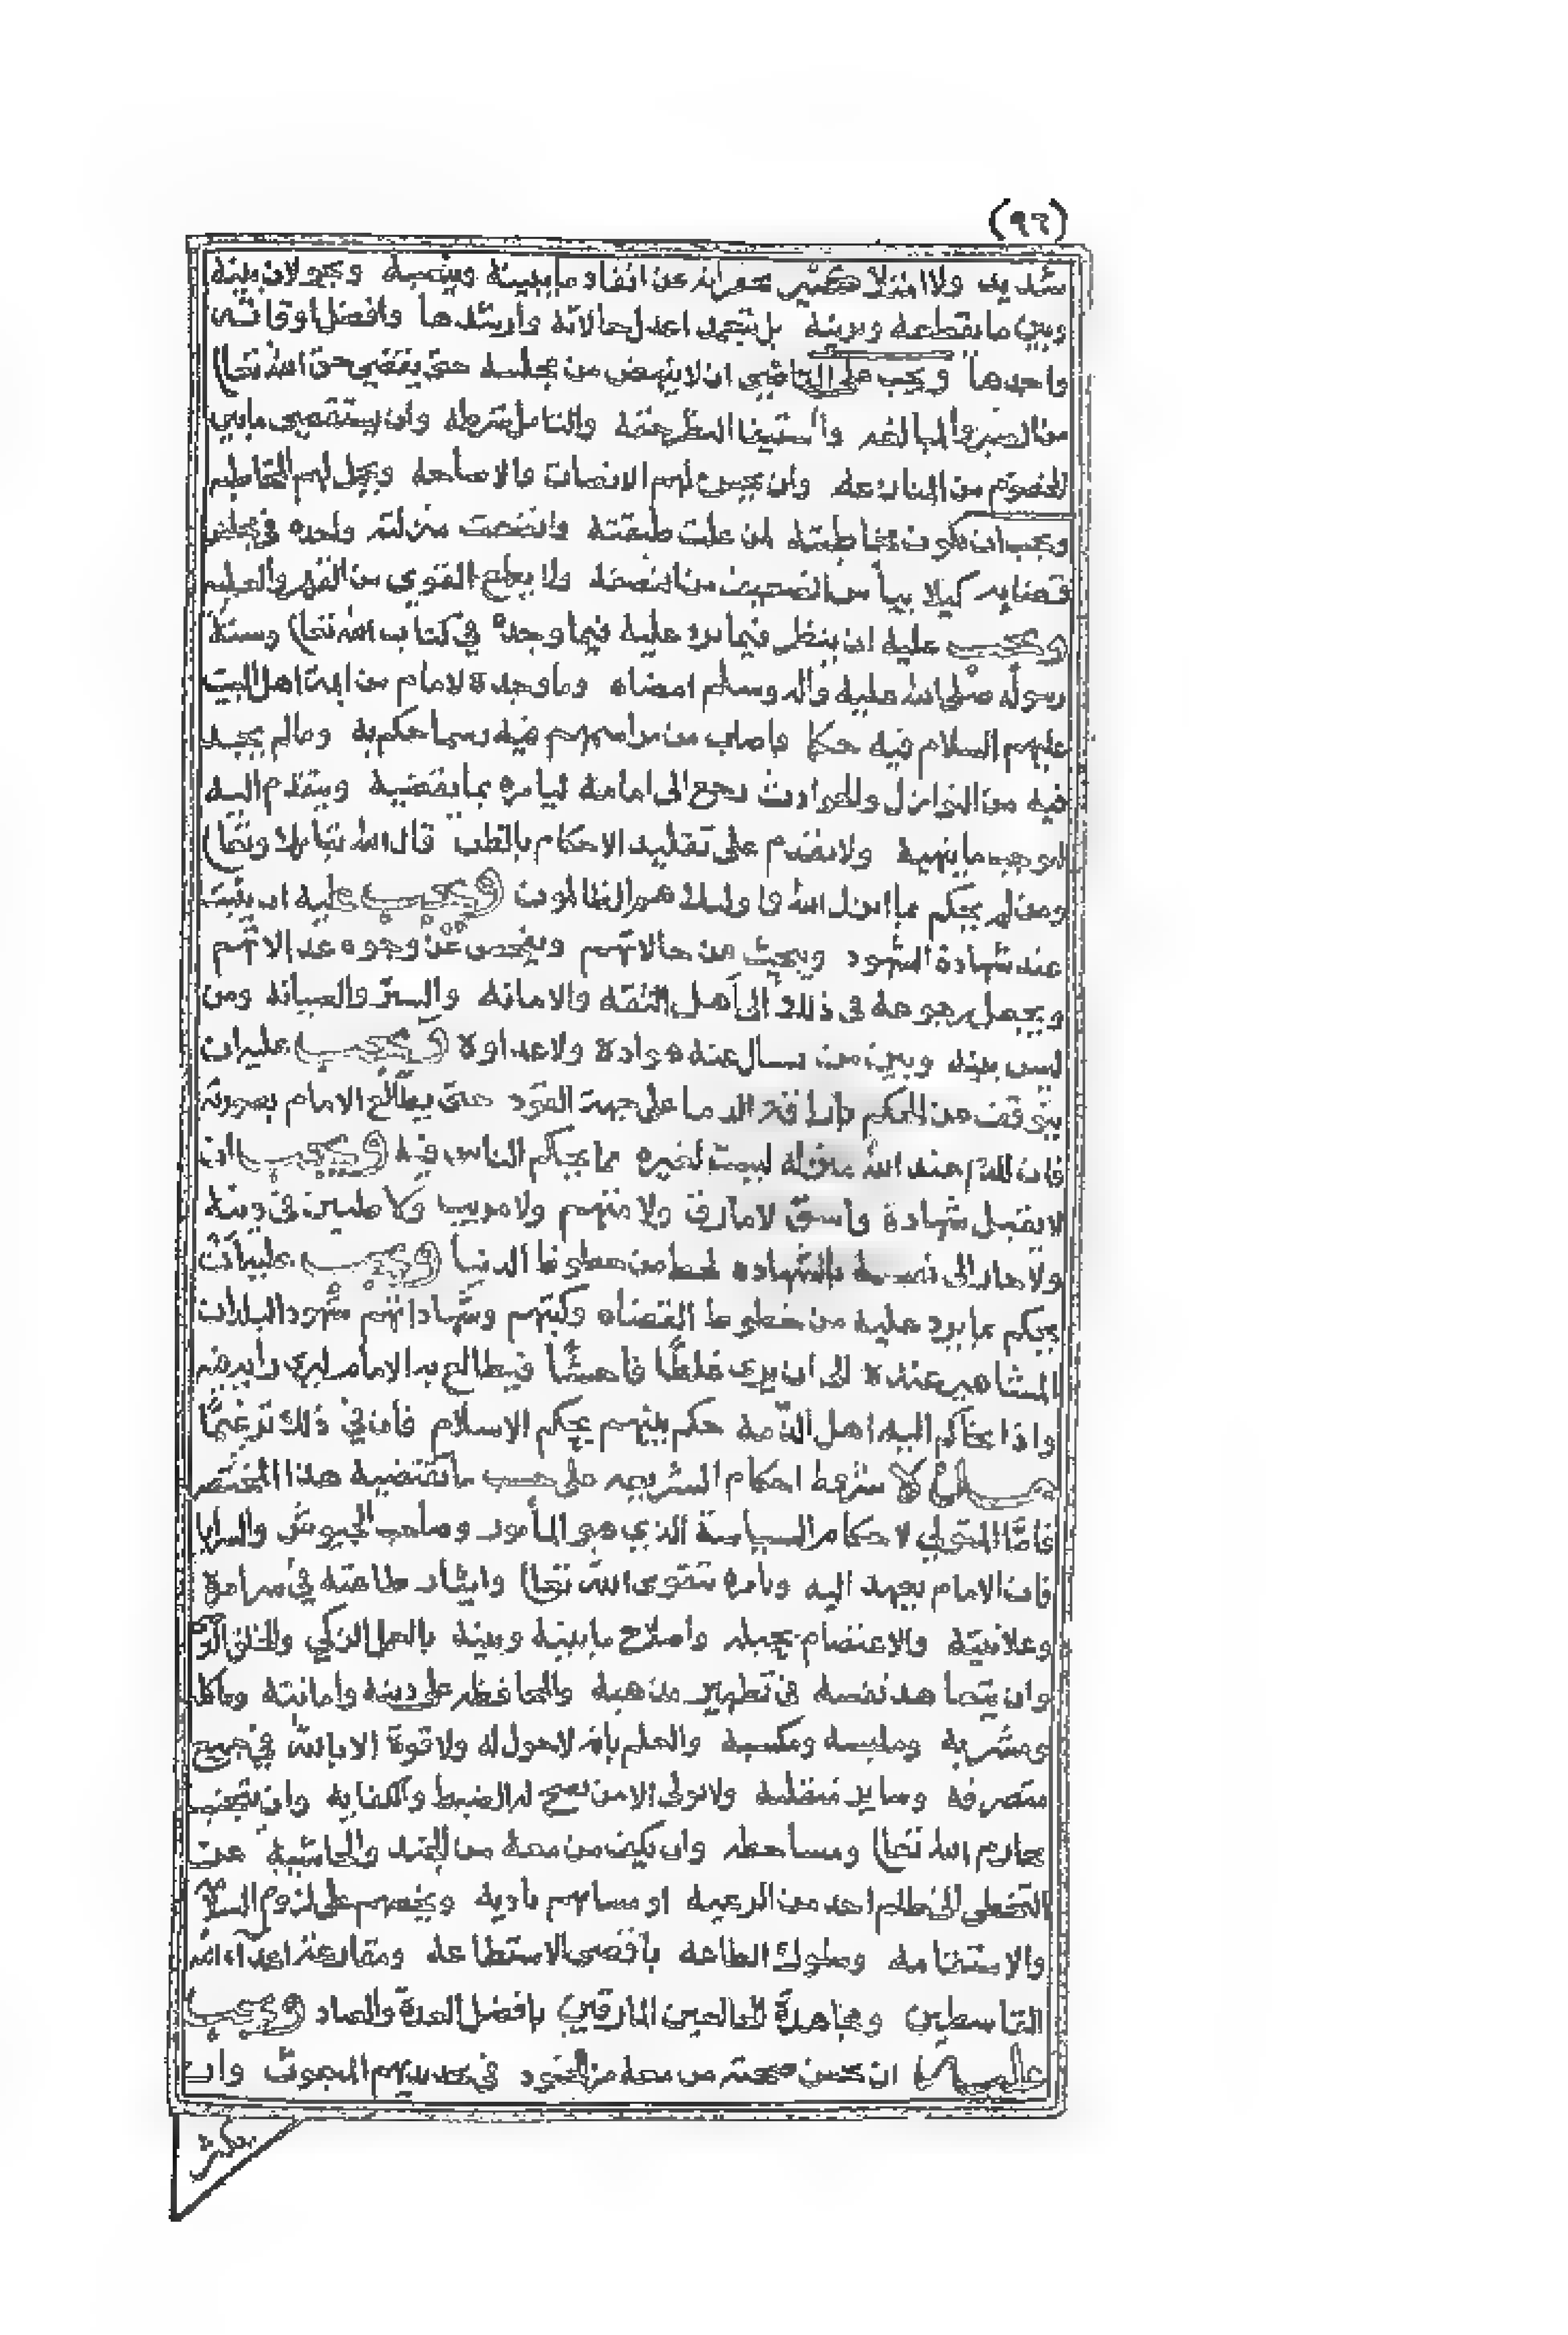 (٩٢)
شديد ولا امتلا مضر محفزانه عن انفاد ما بينه وبينه
وبين ما يقطعه ويرينه بل يتعمد اعدل حالاته وارشدها وافضل اوقاته
واحدها ويجب على القاضي ان لا ينهض من مجلسه حتى يقضي حق الله تعا
من الصبر والمبالغه واستيفا النظر حقه والتامل شرطه وان يستقصى ما بين
الخصوم من المنازعه وان يحسن لهم الانصات والاصاخه
ويجب ان تكون مخاطبته لمن علت طبقته واتضعت منزلته واحده في مجلس
قضايه كيلا ييأس الضعيف من النصفه ولا يطمع القوي من القهر والظلم
ويجب عليه ان ينظر فيما يرد عليه فيما وجده في كتاب الله تعا وسنة
رسوله صلى الله عليه وآله وسلم امضاه وما وجده لامام من ايمة اهل البيت
عليهم السلام فيه حكما واصاب من مراسمهم فيه رسما حكم به وما لم يجد
فيه من النوازل والحوادث رجع الى امامه ليامره بما يقتضيه ويتقدم اليه
بوجب ما ينهيه ولا يقدم على تقليد الاحكام بالظن قال الله تبارك وتعا
ومن لم يحكم بما انزل الله فاولئك هم الظالمون ويجب عليه ان يتثبت
عند شهادة الشهود ويبحث عن حالاتهم ويفحص عن وجوه عدالاتهم
ويجعل رجوعه في ذلك الى اهل الثقه والامانه والستر والصيانه ومن
ليس بينه وبين من يسال عنه هوادة ولا عداوة ويجب عليه ان
يتوقف عن الحكم باراقة الدما على جهة القود حتى يطالع الامام بصورته
فان للدم عند الله منزله ليست لغيره مما يحكم الناس فيه ويجب ان
لا يقبل شهادة فاسق لا مارق ولا متهم ولا مريب ولا طنين في دينه
ولا جار الى نفسه بالشهاده لحظ من حظوظ الدنيا ويجب عليه ان
يحكم بما يرد عليه من خطوط القضاه وكتبهم وشهاداتهم شهود البلدان
المشاهير عنده الى ان يرى غلطا فاحشا فيطالع به الامام ليرى رايه فيه
واذا تحاكم اليه اهل الذمة حكم بينهم بحكم الاسلام فان في ذلك ترغيما
احكام الشريعه على حسب ما تقتضيه هذا المختصر
فاما المتولي لاحكام السياسة الذي هو المأمور وصاحب الجيوش والسرايا
فان الامام يعهد اليه ويامره بتقوى الله تعا وايثار طاعته في سرايره
وعلانيته والاعتصام بحبله واصلاح ما بينه وبينه بالعمل الزكي والخلق
وان يتعاهد نفسه في تطهير مذهبه والمحافظه على دينه وامانته وماكله
ومشربه وملبسه ومكسبه والعلم بانه لا حول له ولا قوة الا بالله في جميع
متصرفه وساير متقلبه ولا يولى الا من نصح له الضبط والكفايه وان يتجنب
محارم الله تعا ومساخطه وان يكف من معه من الجند والحاشيه عن
التخطي الى ظلم احد من الرعيه او مساسهم باذيه ويحضهم على لزوم
والاستقامه وسلوك الطاعه باقصى الاستطاعه ومقارعة اعداء الله
القاسطين ومجاهدة المارقين بافضل العدة والعتاد ويجب
ان يحسن صحبته من معه من الجنود في تجديدهم البعوث وان